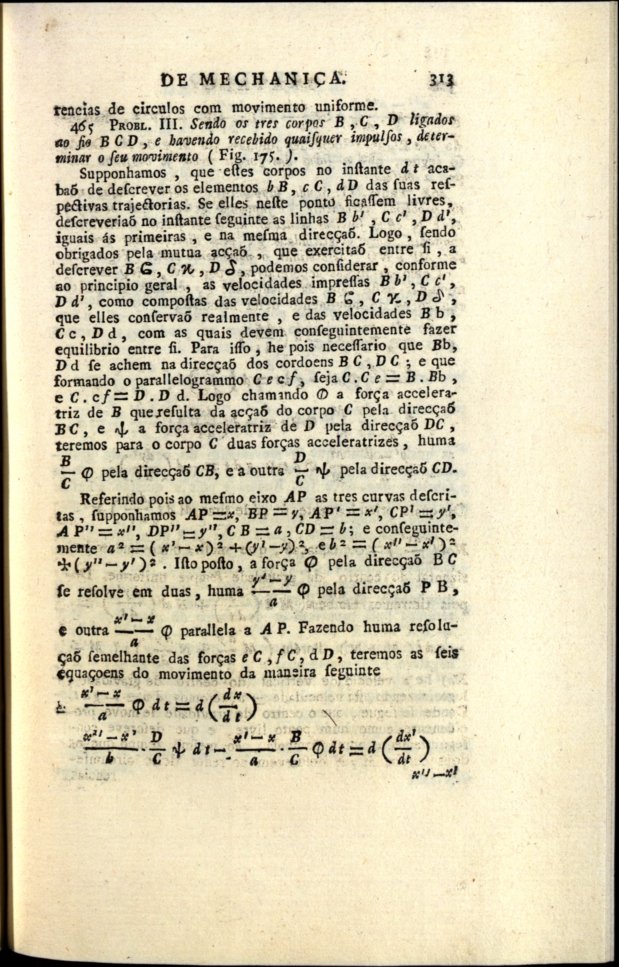 DE MECHANIÇA. 313
rencias de circulos com movimento uniforme.
465 PROBL. III. Sendo os tres corpos B , C , D ligados
ao fio B C D , e havendo recebido quaiſquer impulſos , deter-
minar o ſeu movimento ( Fig. 175. ).
Supponhamos , que eſtes corpos no inſtante d t aca-
baõ de deſcrever os elementos b B , c C , d D das ſuas reſ-
pectivas trajectorias. Se elles neſte ponto ficaſſem livres,
deſcreveriaõ no inſtante ſeguinte as linhas B b' , C c' , D d',
iguais ás primeiras , e na meſma direcçaõ. Logo , ſendo
obrigados pela mutua acçaõ , que exercitaõ entre ſi , a
deſcrever B ϐ , C ϰ , D δ , podemos conſiderar , conforme
ao principio geral , as velocidades impreſſas B b' , C c' ,
D d' , como compoſtas das velocidades B ϐ , C ϰ , D δ ,
que elles conſervaõ realmente , e das velocidades B b ,
C c , D d , com as quais devem conſeguintemente fazer
equilibrio entre ſi. Para iſſo , he pois neceſſario que Bb,
D d ſe achem na direcçaõ dos cordoens B C , D C ; e que
formando o parallelogrammo C e c f , ſeja C . C e = B . Bb ,
e C . c f = D . D d. Logo chamando Φ a força accelera-
triz de B que reſulta da acçaõ do corpo C pela direcçaõ
BC , e ψ a força acceleratriz de D pela direcçaõ DC ,
teremos para o corpo C duas forças acceleratrizes , huma
B/C Φ pela direcçaõ CB, e a outra D/C ψ pela direcçaõ CD.
Referindo pois ao meſmo eixo AP as tres curvas deſcri-
tas , ſupponhamos AP = x, BP = y, AP' = x', CP' = y',
A P'' = x'', DP'' = y'', C B = a , CD = b ; e conſeguinte-
mente a² = ( x' – x )² + (y' – y)², e b² = ( x'' – x' )²
+ ( y'' – y' )² . Iſto poſto , a força Φ pela direcçaõ B C
ſe reſolve em duas , huma (y' – y)/a Φ pela direcçaõ P B ,
e outra (x' – x)/a Φ parallela a A P. Fazendo huma reſolu-
çaõ ſemelhante das forças e C , f C , d D , teremos as ſeis
equaçoens do movimento da maneira ſeguinte
(x' – x)/a Φ d t = d (dx/d t)
(x'' – x')/b · D/C ψ d t – (x' – x)/a · B/C Φ d t = d (dx'/dt)
x'' – x'